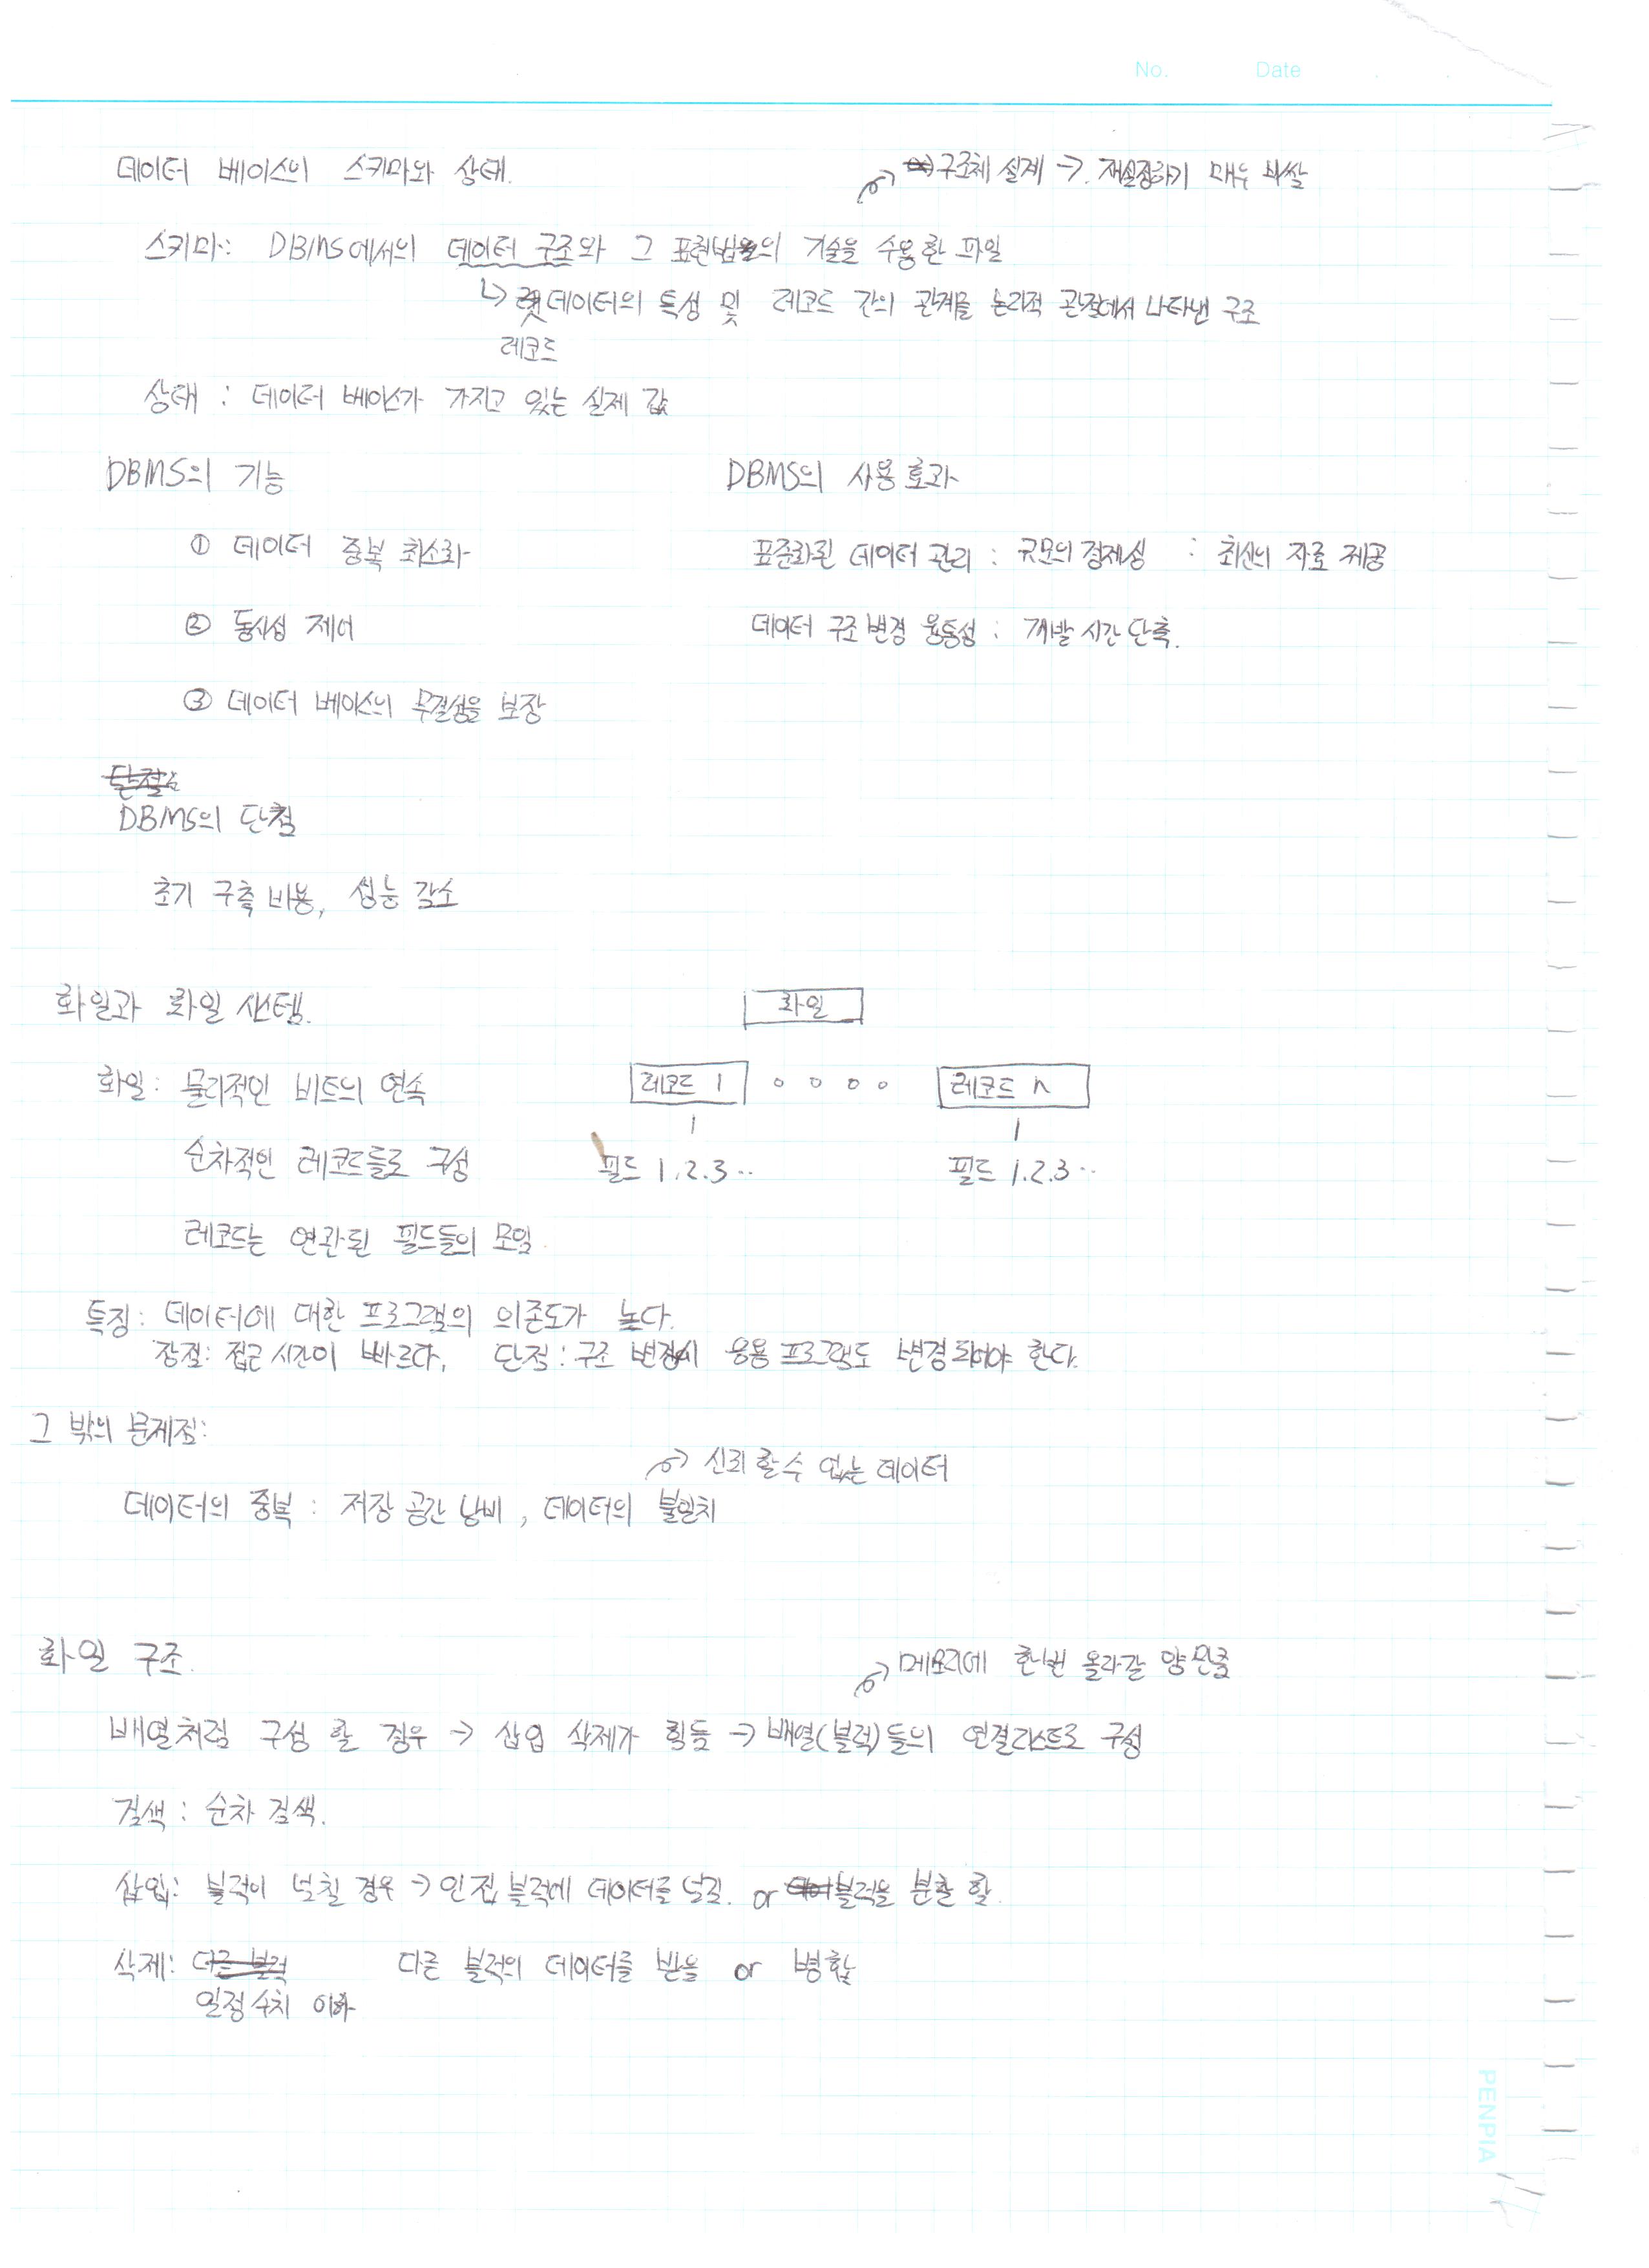 No. Date
데이터 베이스의 스키마와 상태.
구조체 설계 → 재설정하기 매우 비쌈
스키마: DBMS에서의 데이터 구조와 그 표현법의 기술을 수용한 파일
↳ 데이터의 특성 및 레코드 간의 관계를 논리적 관점에서 나타낸 구조
레코드
상태 : 데이터 베이스가 가지고 있는 실제 값
DBMS의 기능
① 데이터 중복 최소화
② 동시성 제어
③ 데이터 베이스의 무결성을 보장
DBMS의 사용효과
표준화된 데이터 관리 : 규모의 경제성 : 최신의 자료 제공
데이터 구조 변경 융통성 : 개발 시간 단축.
단점
DBMS의 단점
초기 구축 비용, 성능 감소
화일과 화일 시스템.
화일: 물리적인 비트의 연속
순차적인 레코드들로 구성
레코드는 연관된 필드들의 모임.
화일
레코드 1 ∘ ∘ ∘ ∘ 레코드 n
필드 1.2.3.. 필드 1.2.3..
특징: 데이터에 대한 프로그램의 의존도가 높다.
장점: 접근 시간이 빠르다, 단점: 구조 변경시 응용 프로그램도 변경 되어야 한다.
그 밖의 문제점:
신뢰 할 수 없는 데이터
데이터의 중복 : 저장 공간 낭비, 데이터의 불일치
화일 구조.
메모리에 한번 올라갈 양 만큼
배열처럼 구성 할 경우 → 삽입 삭제가 힘듦 → 배열(블럭)들의 연결리스트로 구성
검색 : 순차 검색.
삽입: 블럭이 넘칠 경우 → 인접 블럭에 데이터를 넘김. or 블럭을 분할 함.
삭제: 다른 블럭 다른 블럭의 데이터를 받음 or 병합
일정 수치 이하
PENPIA